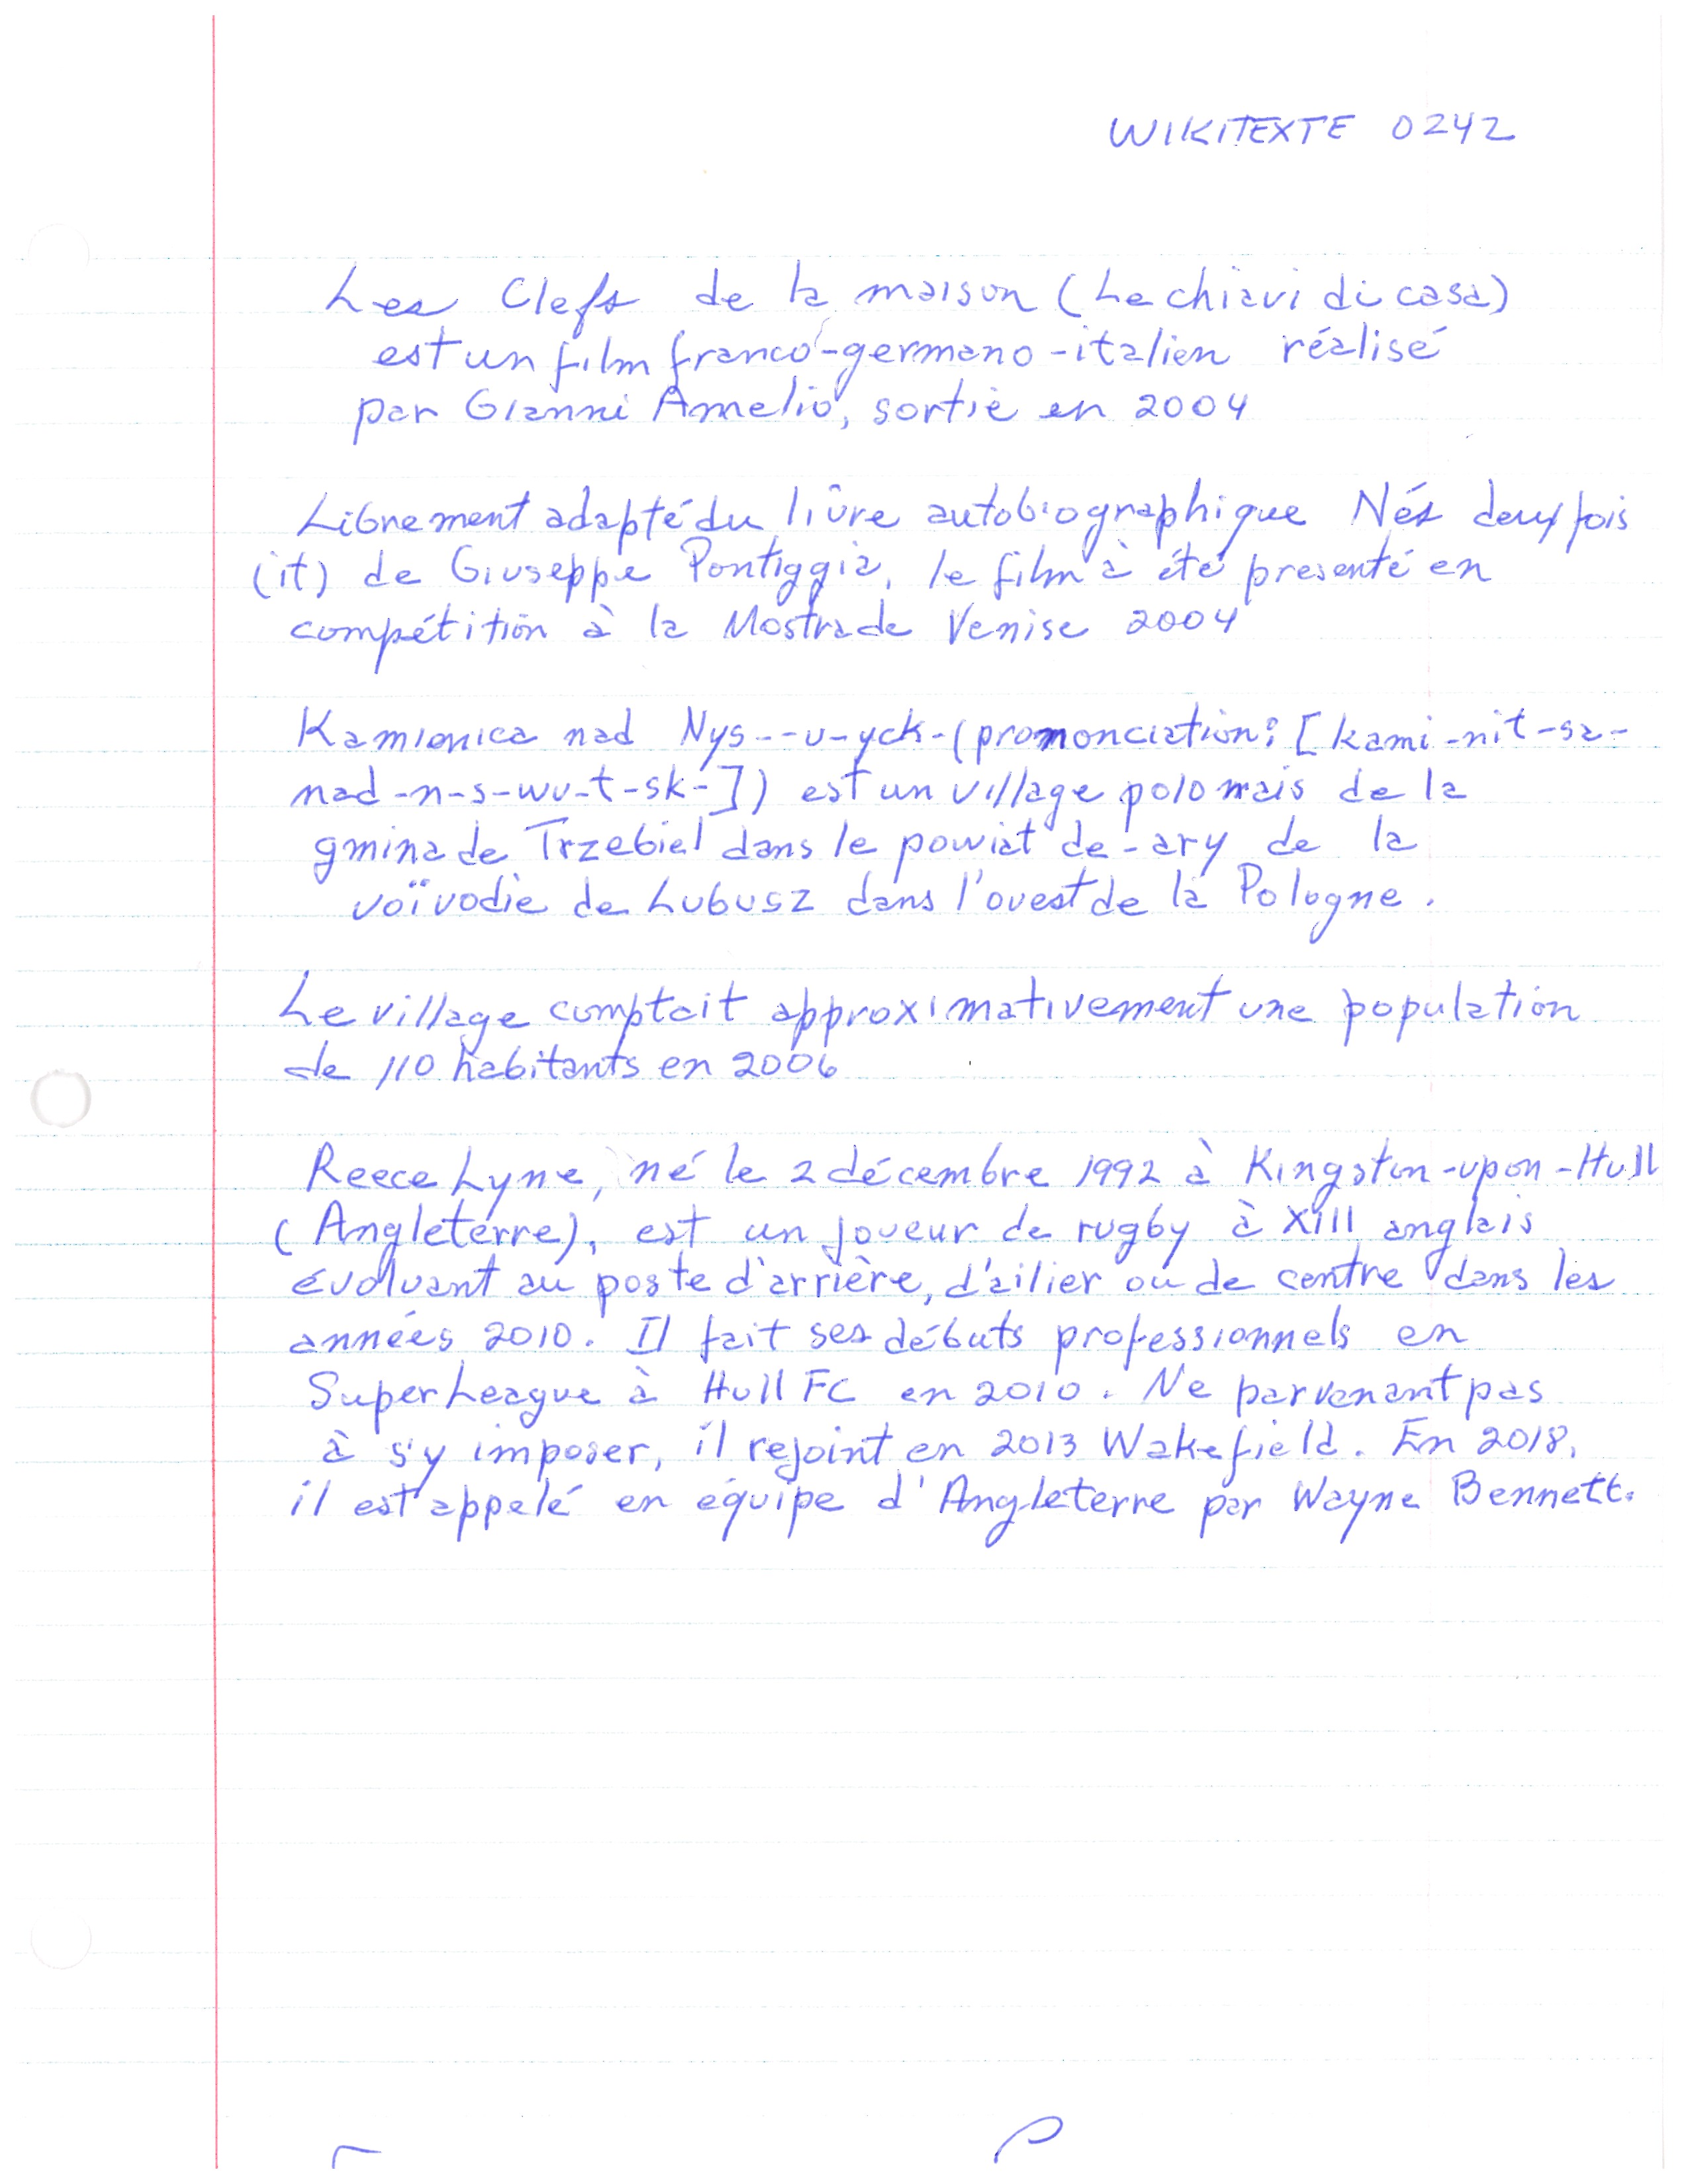 WIKITEXTE 0242
Les Clefs de la maison (Le chiavi di casa)
est un film franco-germano-italien réalisé
par Gianni Amelio, sortie en 2004
Librement adapté du livre autobiographique Nés deux fois
(it) de Giuseppe Pontiggia, le film à été presenté en
compétition à la Mostra de Venise 2004
Kamienica nad Nys---u-yck-(promonciation: [kami-nit-sa-
nad-n-s-wu-t-sk-]) est un village polonais de la
gmina de Trzebiel dans le powiat de -ary de la
voïvodie de Lubusz dans l'ouest de la Pologne.
Le village comptait approximativement une population
de 110 habitants en 2006
Reece Lyne, né le 2 décembre 1992 à Kingston-upon-Hull
(Angleterre), est un joueur de rugby à XIII anglais
évoluant au poste d'arrière, d'ailier ou de centre dans les
années 2010. Il fait ses débuts professionnels en
Super League à Hull FC en 2010. Ne parvenant pas
à s'y imposer, il rejoint en 2013 Wakefield. En 2018,
il est appelé en équipe d'Angleterre par Wayne Bennett.